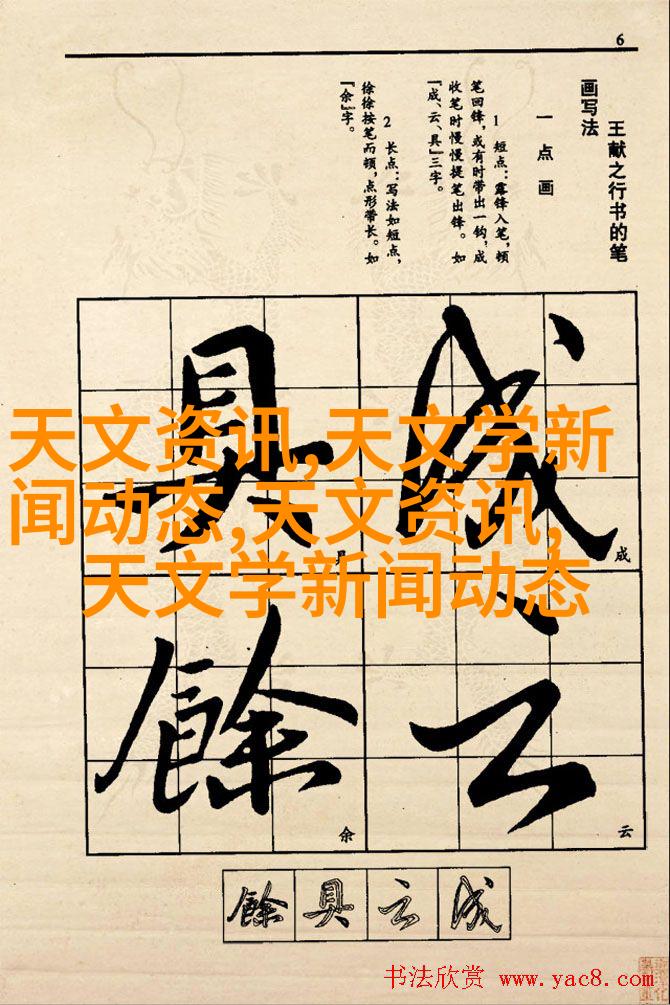 6
王献之行书的笔
画写法
一 点 画
1 短点：露锋入笔，顿
笔回锋，或有时带出一钩，成
收笔时慢慢提笔出锋。如
『成、云、具』三字。
2 长点：写法如短点，
徐徐按笔而顿，点形带长。如
『余』字。
成
具
云
餘
成
具
云
余
天文资讯,天文学新
闻动态,天文资讯,
天文学新闻动态
餘 具 云 成
书法欣赏 www.yac8.com